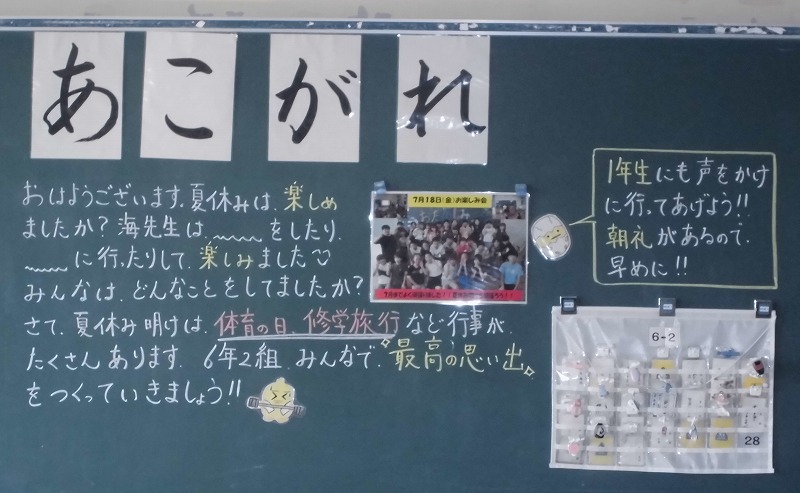 あこがれ
おはようございます。夏休みは、楽しめ
ましたか？海先生は、﹏﹏をしたり、
﹏﹏に行ったりして、楽しみました
みんなは、どんなことをしてましたか？
さて、夏休み明けは、体育の日、修学旅行など行事が、
たくさんあります。6年2組、みんなで、最高の思い出
をつくっていきましょう!!
7月18日(金)お楽しみ会
1年生にも声をかけ
に行ってあげよう!!
朝礼があるので、
早めに!!
6-2
28